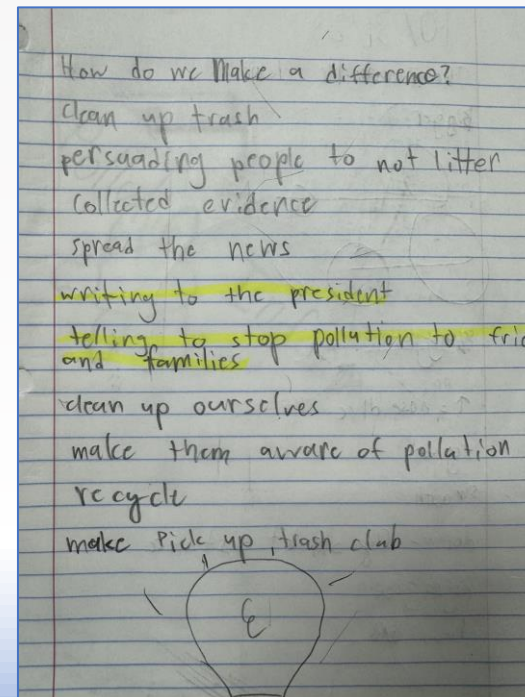 How do we Make a difference?
clean up trash
persuading people to not litter
collected evidence
spread the news
writing to the president
telling to stop pollution to
and families
clean up ourselves
make them aware of pollation
recycle
make Pick up trash club